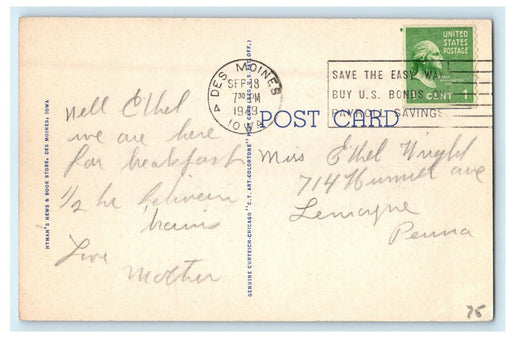 UNITED
STATES
POSTAGE
CENT 1
DES MOINES
SEP 18
7 30 PM
1949
IOWA
SAVE THE EASY WAY
BUY U.S. BONDS ON
PAYROLL SAVINGS
POST CARD
Well Ethel
we are here
for breakfast
1/2 hr between
trains
Love
Mother
Miss Ethel Wright
714 Hummel ave
Lemoyne
Penna
HYMAN'S NEWS & BOOK STORE, DES MOINES, IOWA
GENUINE CURTEICH-CHICAGO "C.T. ART-COLORTONE" POST CARD (REG. U.S. PAT. OFF.)
75